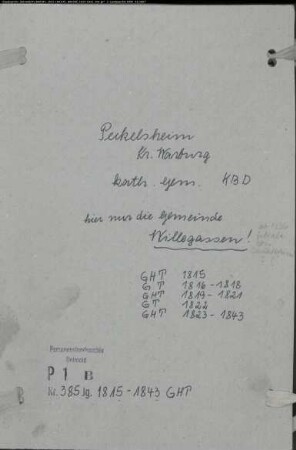 Peckelsheim
Kr. Warburg
kath. Gem. KBD
hier nur die Gemeinde
Willegassen!
GHT 1815
GT 1816-1818
GHT 1819-1821
GT 1822
GHT 1823-1843
Personenstandsarchiv
Detmold
P 1 B
Nr. 385 Jg. 1815-1843 GHT